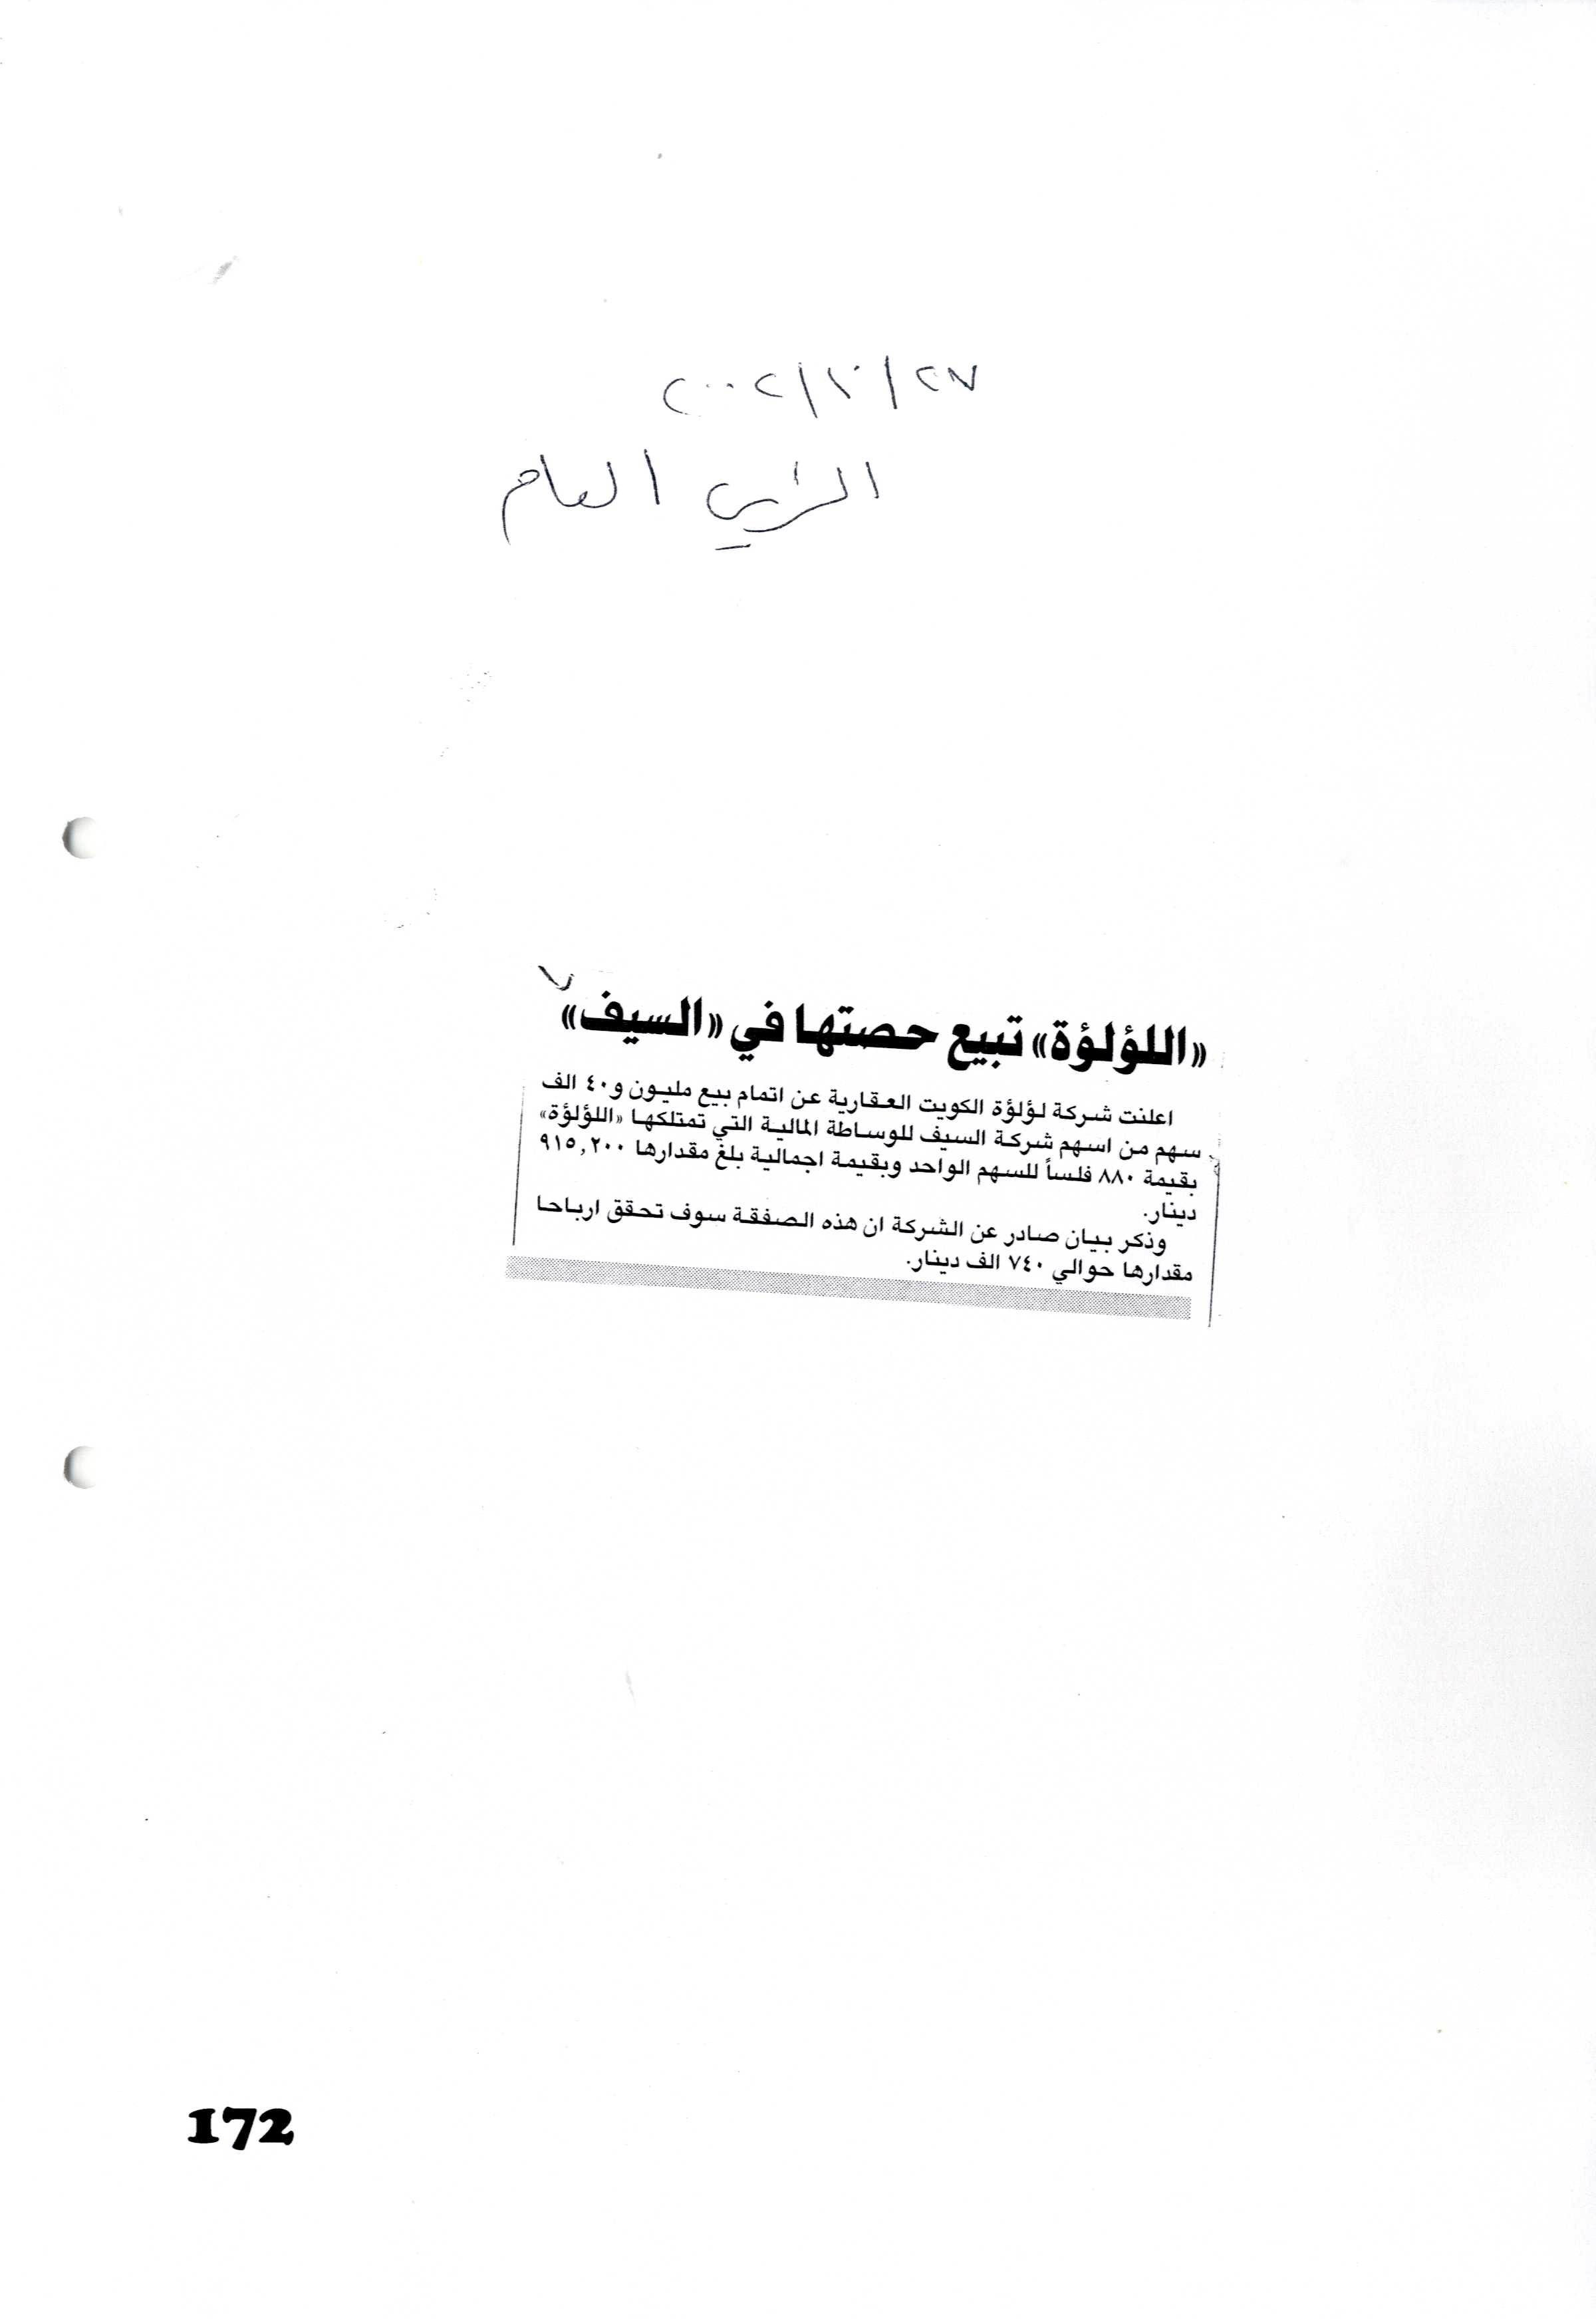 ٢٠٠٢/١٠/٢٧
الرأي العام
«اللؤلؤة» تبيع حصتها في «السيف»
اعلنت شركة لؤلؤة الكويت العقارية عن اتمام بيع مليون و٤٠ الف
سهم من اسهم شركة السيف للوساطة المالية التي تمتلكها «اللؤلؤة»
بقيمة ٨٨٠ فلساً للسهم الواحد وبقيمة اجمالية بلغ مقدارها ٩١٥,٢٠٠
دينار.
وذكر بيان صادر عن الشركة ان هذه الصفقة سوف تحقق ارباحا
مقدارها حوالي ٧٤٠ الف دينار.
172